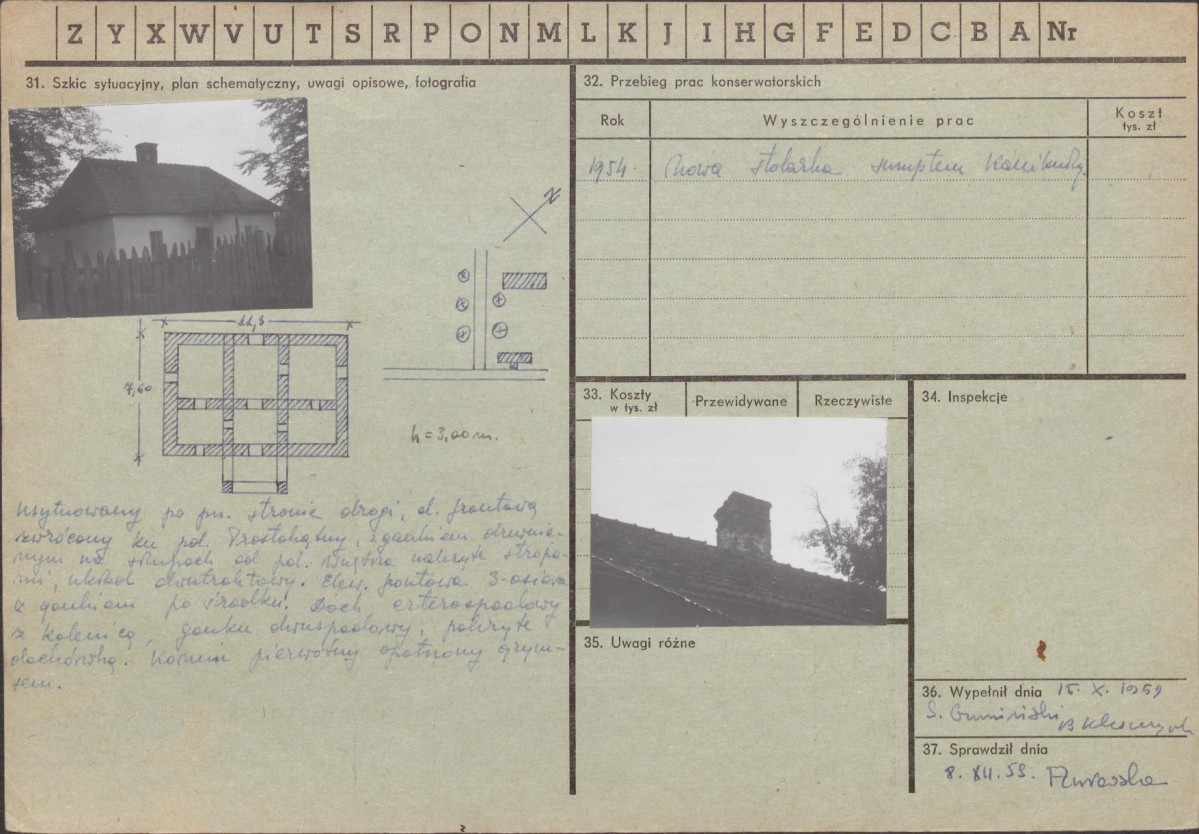 Z Y X W V U T S R P O N M L K J I H G F E D C B A Nr
31. Szkic sytuacyjny, plan schematyczny, uwagi opisowe, fotografia
N
11,5
7,60
h = 3,00 m.
usytuowany po pn. stronie drogi, el. frontową
zwrócony ku pd. Prostokątny, z gankiem drewnia-
nym na słupach od pd. Wnętrza nakryte stropa-
mi, układ dwutraktowy. Elew. frontowa 3-osiowa
z gankiem po środku. Dach czterospadowy
z kalenicą, ganku dwuspadowy, pokryte
dachówką. Komin pierwotny opatrzony gzym-
sem.
32. Przebieg prac konserwatorskich
Rok
Wyszczególnienie prac
Koszt
tys. zł
1954. Nowa stolarka sumptem
33. Koszty
w tys. zł
Przewidywane
Rzeczywiste
34. Inspekcje
35. Uwagi różne
36. Wypełnił dnia 15. X. 1959
S.
37. Sprawdził dnia
8. XII. 59.